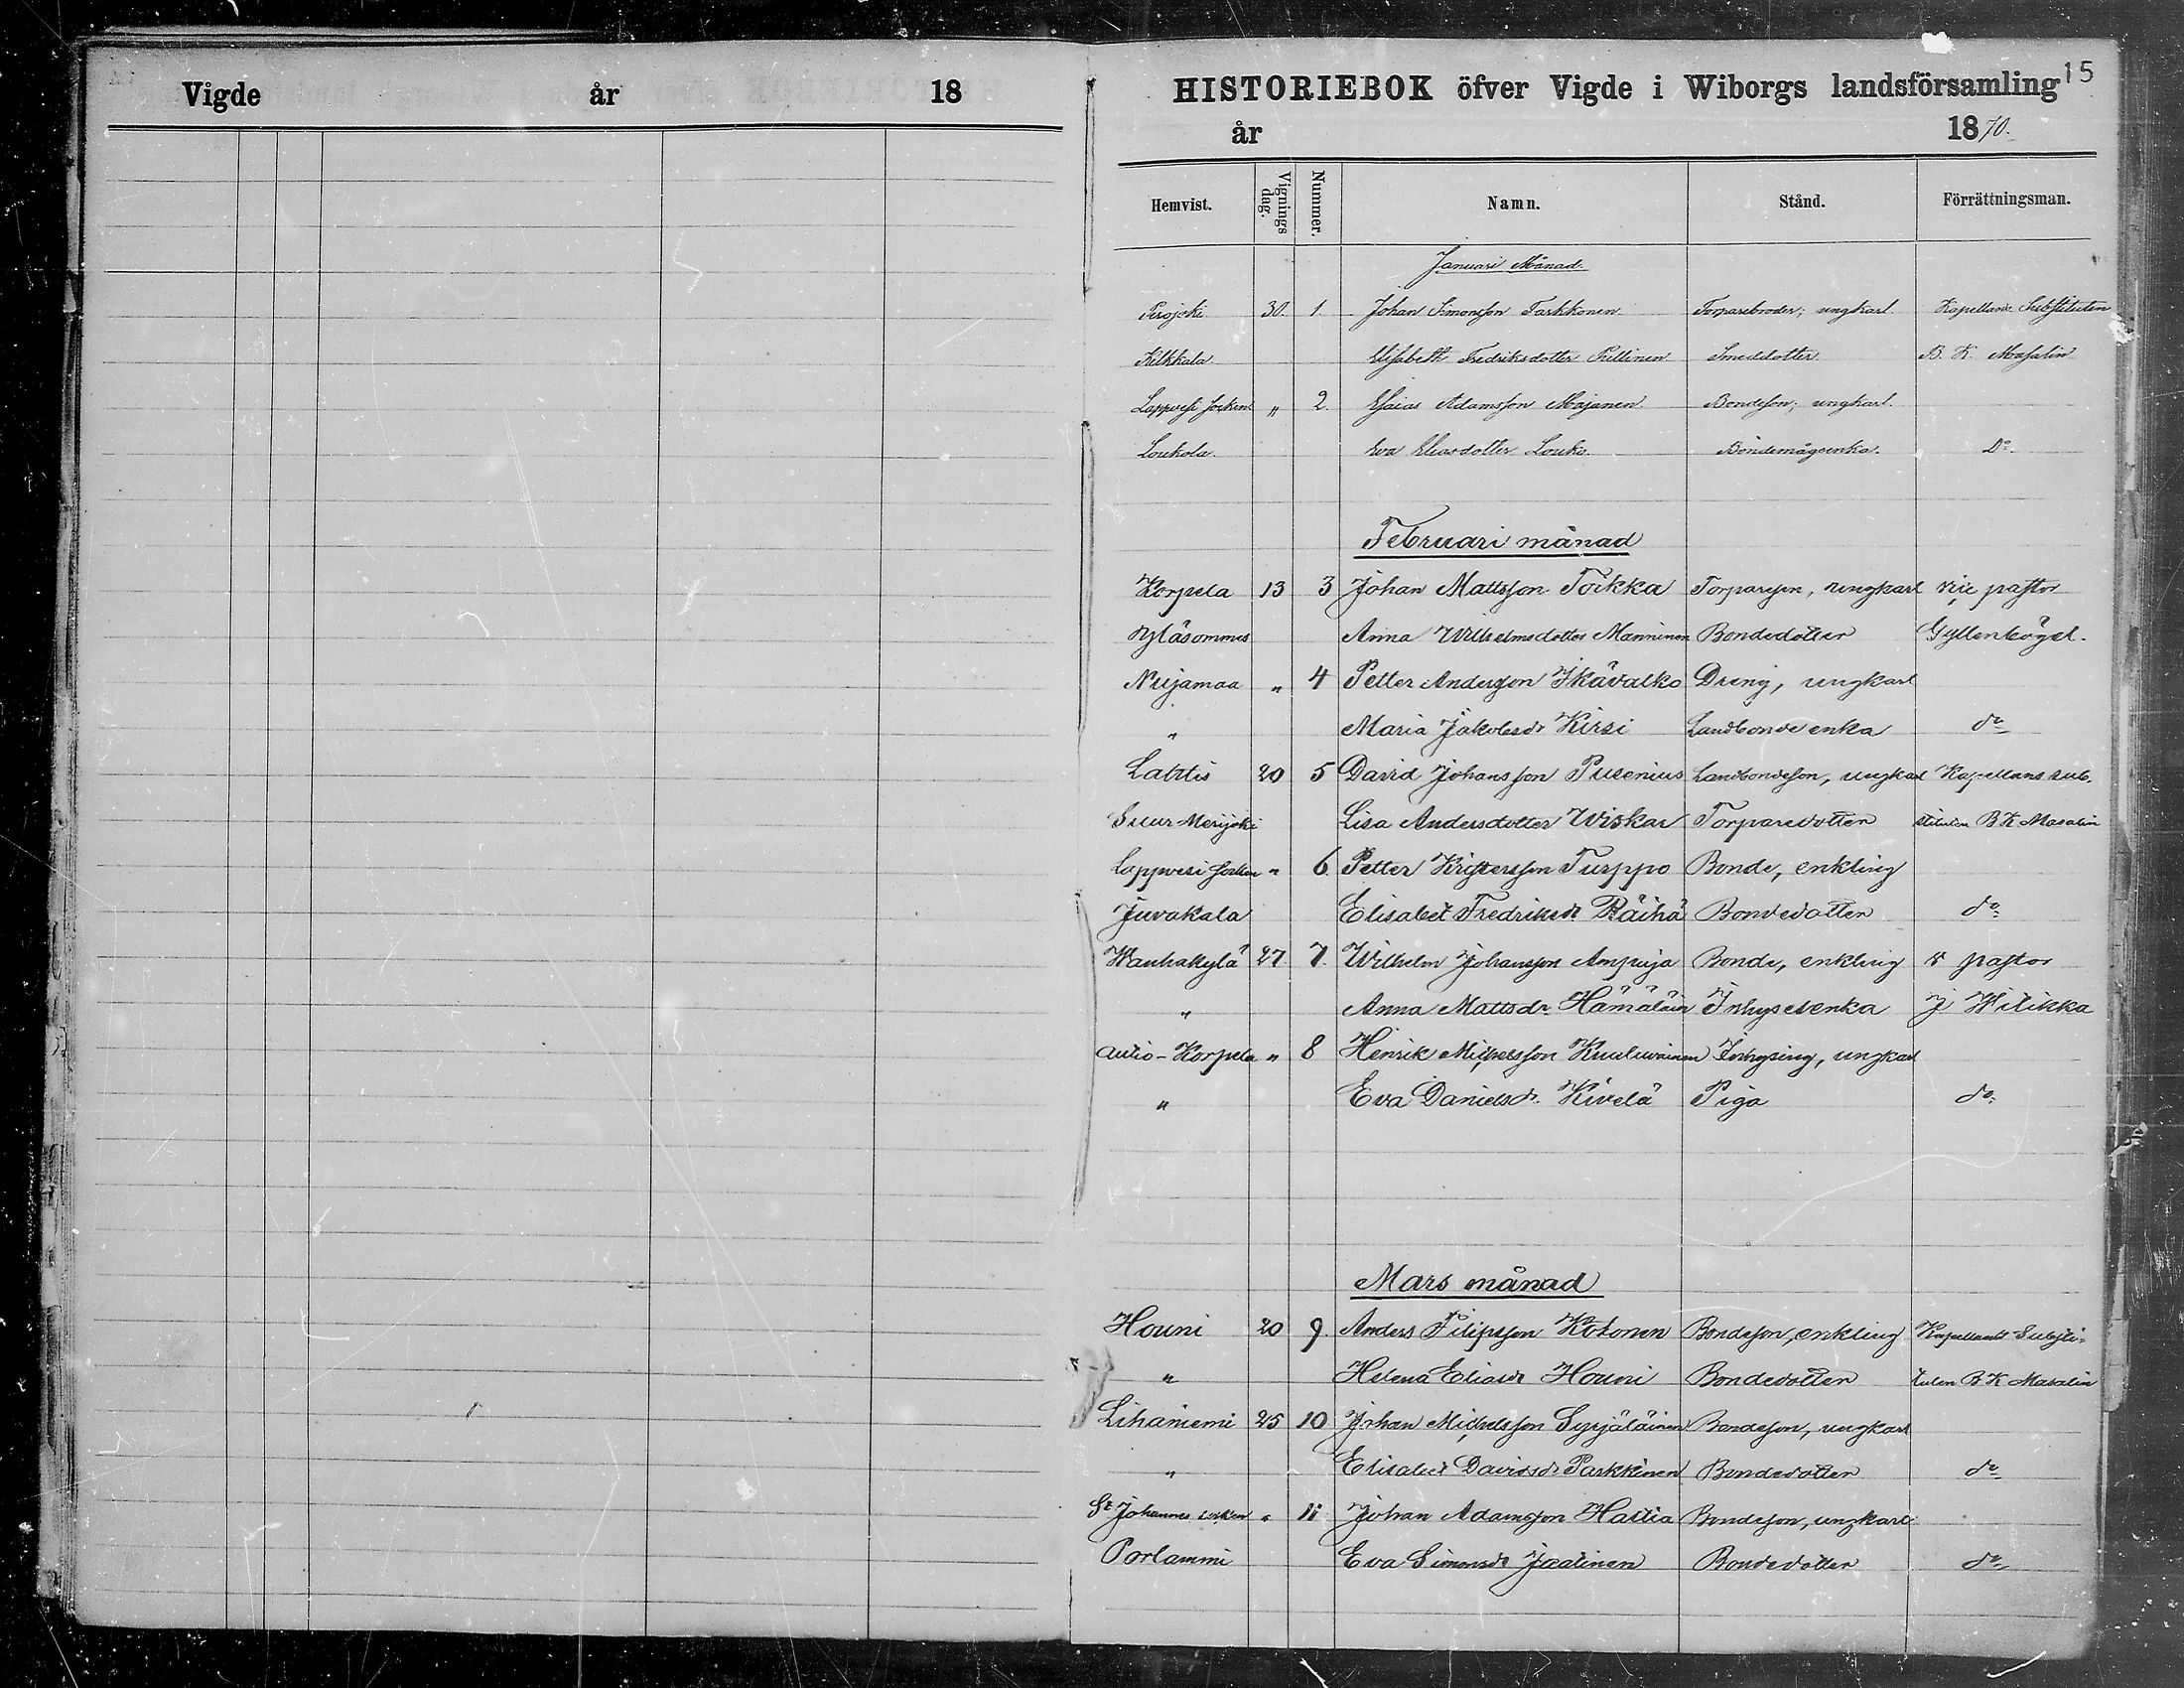 Vigde år 18
HISTORIEBOK öfver Vigde i Wiborgs landsförsamling 15
år 1870.
Hemvist. Vignings dag. Nummer. Namn. Stånd. Förrättningsman.
Januari Månad.
Perojoki 30. 1. Johan Simonsson Tarkkonen Torparebroder; ungkarl. Kapellans Substituten
Kilkkala. Elisabeth Fredriksdotter Pillinen Smeddotter. B. K. Masalin
Lappvesi socken " 2. Esaias Adamsson Majanen Bondeson; ungkarl.
Loukola. Eva Eliasdotter Louko. Bondemågsenka. Do.
Februari månad
Korpela 13 3 Johan Mattsson Toikka Torpareson, ungkarl vice pastor
Yläsommee Anna Wilhelmsdotter Manninen Bondedotter Gyllenbögel.
Nuijamaa " 4 Petter Andersson Ikävalko Dreng, ungkarl
" Maria Jakobsdr Kirsi Landbonde enka do
Lahtis 20 5 David Johansson Pusenius Landbondeson, ungkarl Kapellans sub.
Suur-Merijoki Lisa Andersdotter Wiskar Torparedotter stituten B K Masalin
Lappvesi socken " 6. Petter Kristersson Turppo Bonde, enkling
Juvakala Elisabet Fredriksdr Räihä Bondedotter do
Wanhakylä 27. 7. Wilhelm Johansson Ampuja Bonde, enkling v pastor
" Anna Mattsdr. Hämäläin Inhysesenka J Witikka
Autio-Korpela " 8 Henrik Michelsson Kuuluvainen Inhysing, ungkarl
" Eva Danielsdr. Kivelä Piga do
Mars månad
Houni 20 9. Anders Filipsson Kotonen Bondeson, enkling Kapellans Substi-
" Helena Eliasdr Houni Bondedotter tuten B K Masalin
Lihaniemi 25 10 Johan Michelsson Syrjäläinen Bondeson, ungkarl
" Elisabet Davidsdr Parkkinen Bondedotter do
St Johannes socken " 11 Johan Adamsson Hastia Bondeson, ungkarl
Porlammi Eva Simonsdr Jaatinen Bondedotter do